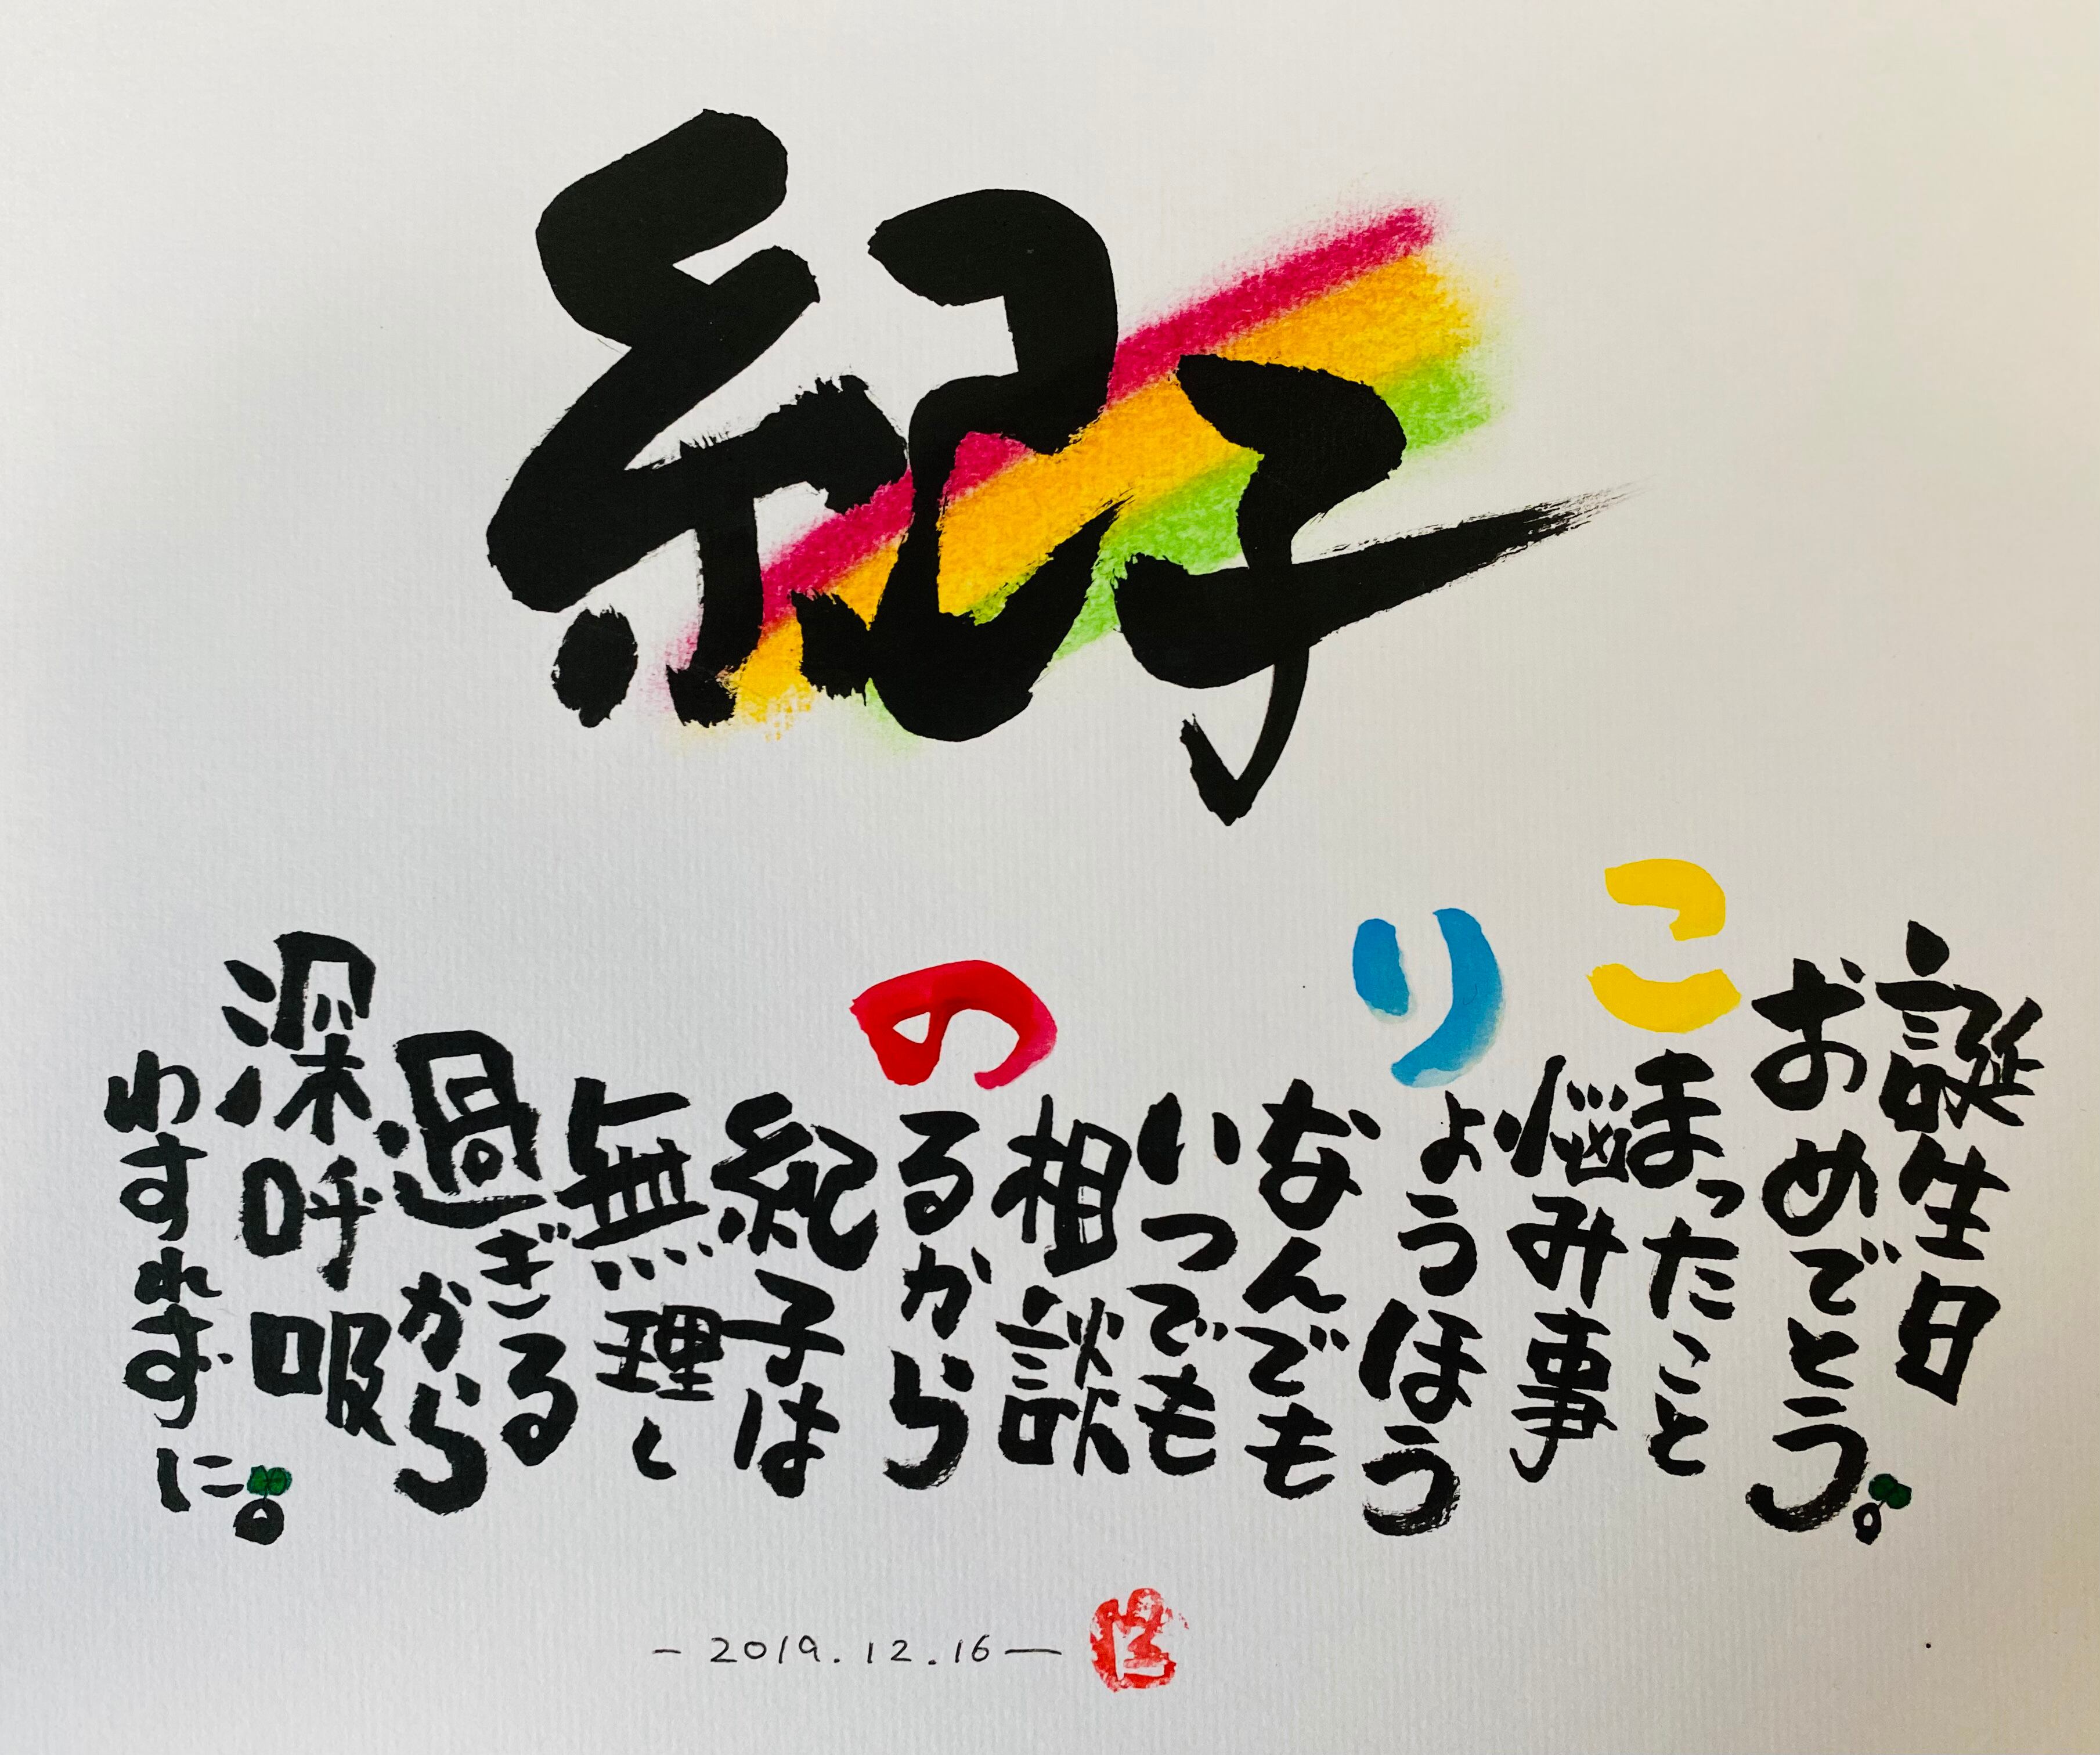 紀子
誕生日
おめでとう。
こまったこと
悩み事
りょうほう
なんでも
いつでも
相談
のるから
紀子は
無理し
過ぎるから
深呼吸
わすれずに。
-2019.12.16-